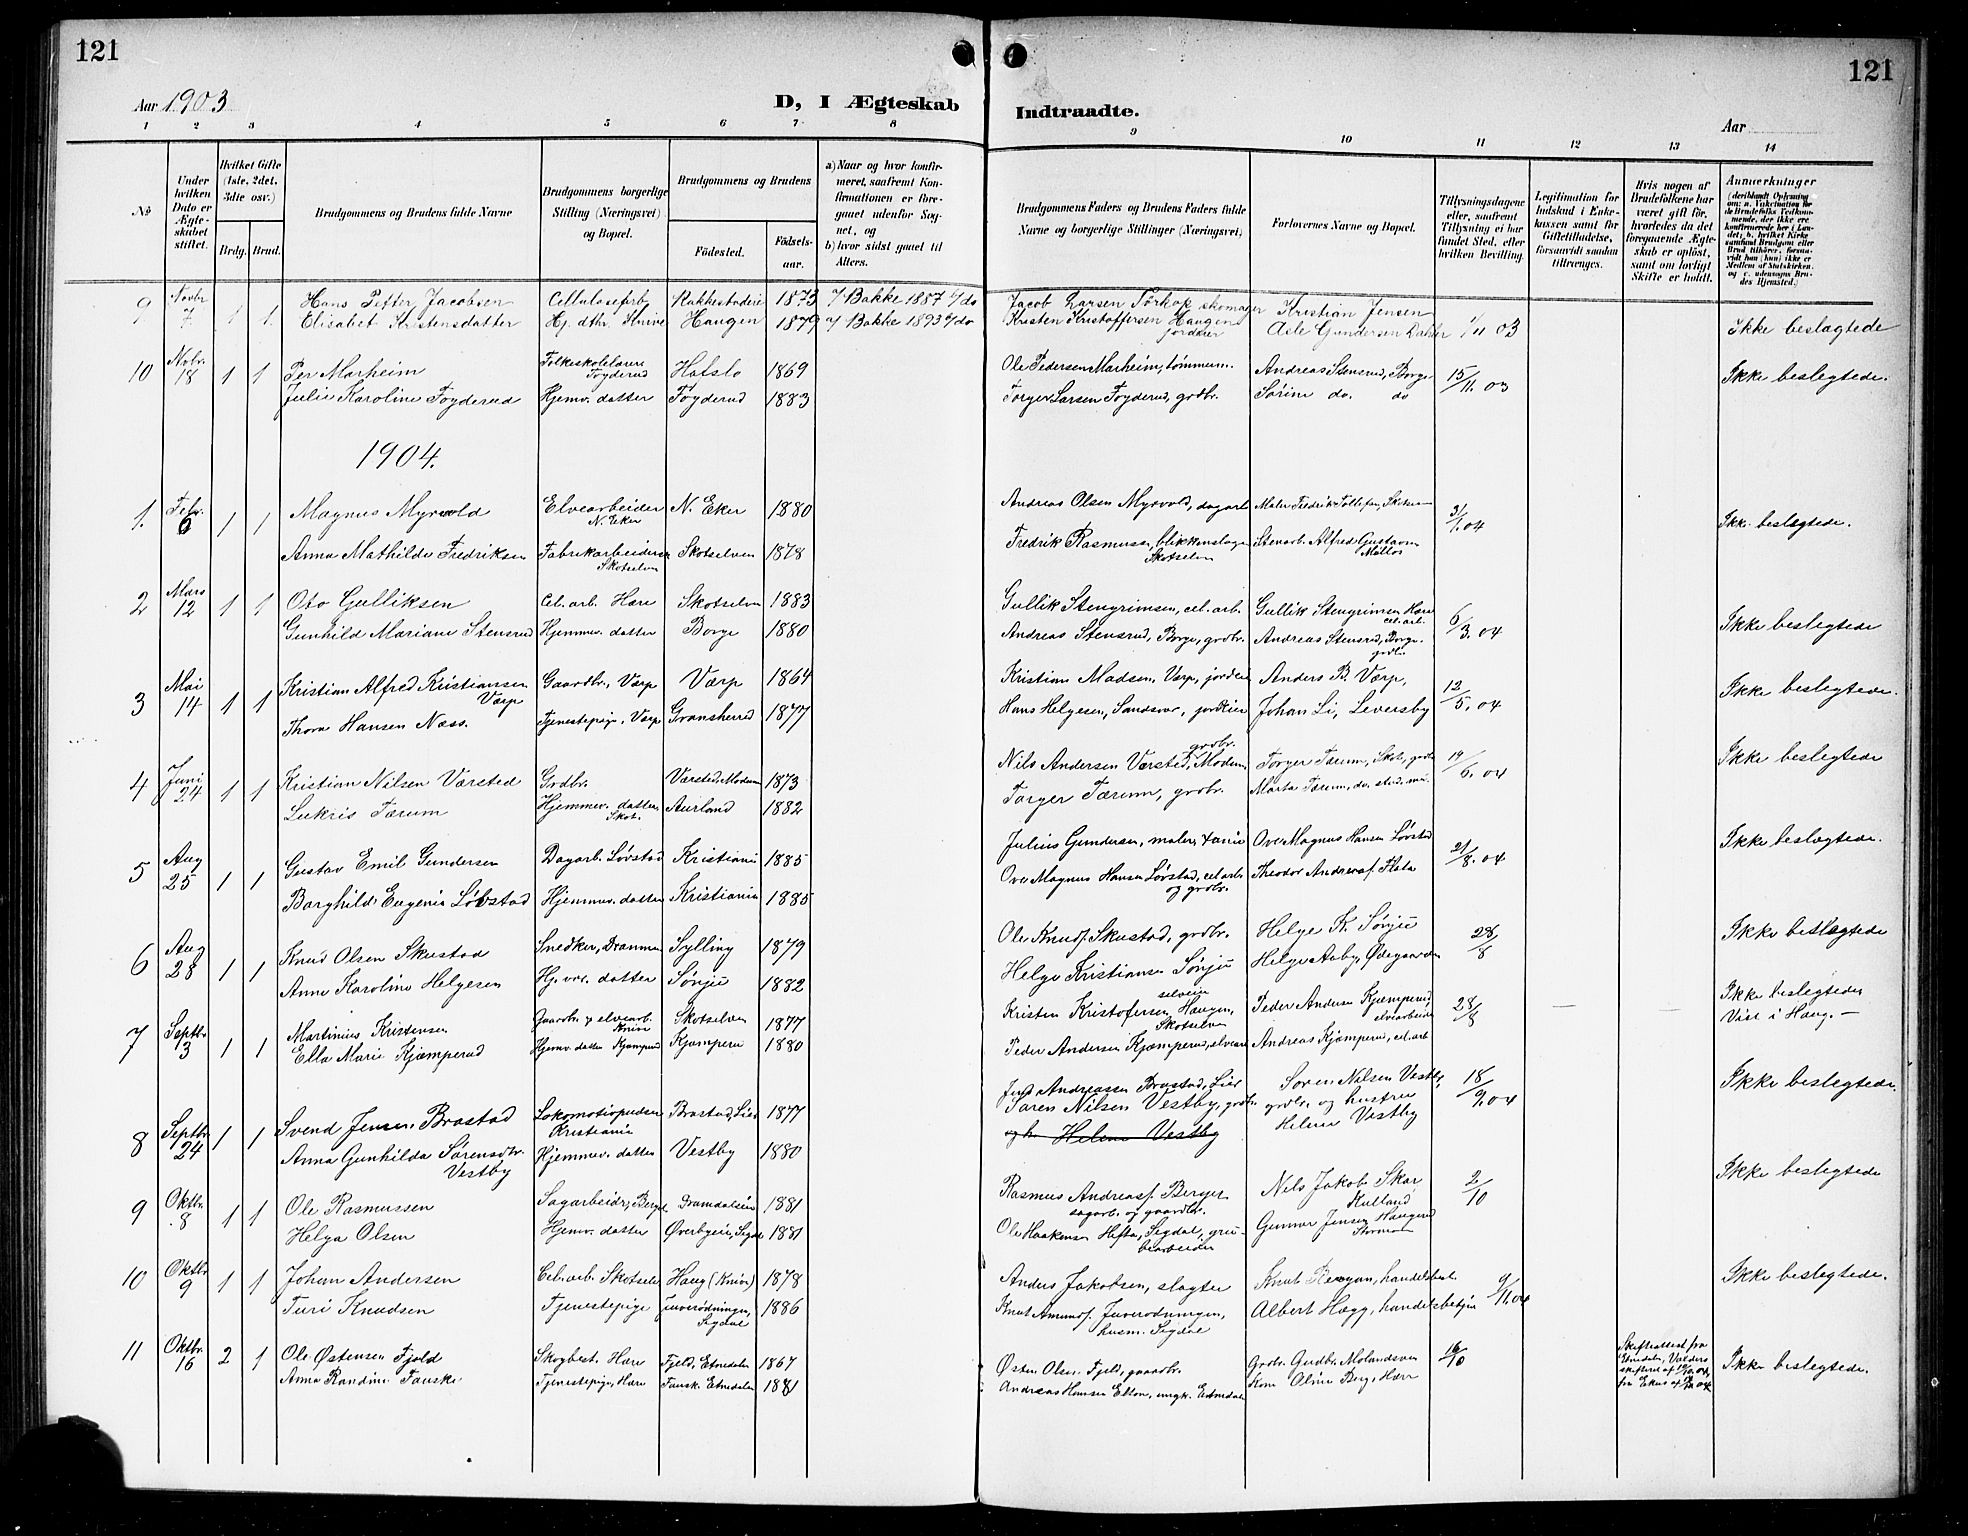 121
121
Aar 1903
D, I Ægteskab
Indtraadte.
Aar
1 2 3 4 5 6 7 8
9 10 11 12 13 14
No
Under hvilken Dato er Ægteskabet stiftet.
Hvilket Gifte (1ste, 2det, 3die osv.)
Brdg. Brud.
Brudgommens og Brudens fulde Navne
Brudgommens borgerlige Stilling (Næringsvei) og Bopæl.
Brudgommens og Brudens
Fødested.
Fødselsaar.
a) Naar og hvor konfirmeret, saafremt Konfirmationen er foregaaet udenfor Sognet, og
b) hvor sidst gaaet til Alters.
Brudgommens Faders og Brudens Faders fulde Navne og borgerlige Stillinger (Næringsvei)
Forlovernes Navne og Bopæl.
Tillysningsdagene eller, saafremt Tillysning ei har fundet Sted, efter hvilken Bevilling.
Legitimation for Indskud i Enkekassen samt for Giftetilladelse, forsaavidt saadan tiltrænges.
Hvis nogen af Brudefolkene har været gift før, hvorledes da det foregaaende Ægteskab er opløst, samt om lovligt Skifte er holdt.
Anmærkninger
9 Novbr 7 1 1 Hans Petter Jacobsen Cellulosearb. Rakkestadeie 1873 a/ Bakke 1887 b/ do Jacob Larsen Torkop skomager Kristian Jensen 1/11 03 Ikke beslægtede
Elisabet Kristensdatter Hj. dtr. Knive Haugen 1879 a/ Bakke 1893 b/ do Kristen Kristoffersen Haugen jordeier Asle Gundersen
10 Nvbr. 18 1 1 Per Marheim Folkeskolelærer Foyderud Hafslo 1869 Ole Pedersen Marheim, tømmerm. Andreas Stensrud, Borge 15/11. 03 Ikke beslegtede.
Julie Karoline Foyderud Hjemv. datter Foyderud 1883 Torger Larsen Foyderud, grdbr. Sørine do. do
1904.
1. Febr. 6 1 1 Magnus Myrvold Elvearbeider N. Eker N. Eker 1880 Andreas Olsen Myrvold, dagarb. Maler Fredrik Tollefsen, 31/1. 04 Ikke beslægtede.
Anna Mathilde Fredriksen Fabrikarbeiderske Skotselven Skotselven 1878 Fredrik Rasmussen, blikkenslager Skotselven Stenarb. Alfred Gustavsen
2 Mars 12 1 1 Oto Gulliksen Cel. arb. Hære Skotselven 1883 Gullik Stengrimsen, cel. arb. Gullik Stengrimsen Hære cel. arb. 6/3. 04 Ikke beslegtede
Gunhild Mariane Stensrud Hjemmev. datter Borge 1880 Andreas Stensrud, Borge, grdbr. Andreas Stensrud, Borge. grdbr.
3 Mai 14 1 1 Kristian Alfred Kristiansen Værp Gaardbr., Værp Værp 1864 Kristian Madsen, Værp, jordeier Anders B. Værp, 12/5. 04 Ikke beslegtede.
Thora Hansen Næss. Tjenestepige, Værp Gransherred 1877 Hans Helgesen, Sandsvær, jordeier Johan Li, Leversby
4 Juni 24 1 1 Kristian Nilsen Værsted Grdbr. Værsted, Modum 1873 Nils Andersen Værsted, Modum, grdbr. Torger Tærum, Skot., grdbr. 19/6. 04 Ikke beslegtede
Lukris Tærum Hjemmev. datter, Skot. Aurland 1882 Torger Tærum, grdbr. Marta Tærum, do, sted.
5 Aug 25 1 1 Gustav Emil Gundersen Dagarb. Løvstad Kristiania 1885 Julius Gundersen, maler, Ove Magnus Hansen Løvstad 21/8. 04 Ikke beslægtede.
Borghild Eugenie Løvstad Hjemmev. datter Kristiania 1885 Ove Magnus Hansen Løvstad, cel. arb. og grdbr. Theodor Andreasf. Flata
6 Aug 28 1 1 Knud Olsen Skustad Snedker, Drammen Sylling 1879 Ole Knuds. Skustad, grdbr. Helge K. Sønju 28/8 Ikke beslægtede
Anne Karoline Helgesen Hj. vær. datter Sønju 1882 Helge Kristiansen Sønju selveier Helge Aaby, Ødegaarden
7 Septbr 3 1 1 Martinius Kristensen Gaardbr. & elvearb. Knive Skotselven 1877 Kristen Kristofersen Haugen, Skotselven Peder Andersen Kjæmperud elvearbeider 28/8 — Ikke beslegtede Viet i Haug. —
Ella Marie Kjæmperud Hjemv. datter Kjæmperud Kjæmperu 1880 Peder Andersen Kjæmperud, elvearb. Andreas Kjæmperud, cel. arb
8 Septbr 24 1 1 Svend Jensen Brastad Lokomotivpudser Kristiania Brastad, Lier 1877 Jens Andreassen Brastad, Lier Søren Nilsen Vestby, grdbr. og hustru Helene Vestby 18/9. 04 Ikke beslegtede.
Anna Gunhilda Sørensdtr. Vestby Hjemmev. datter Vestby 1880 Søren Nilsen Vestby, grdbr. og h. Helene Vestby
9 Oktbr. 8 1 1 Ole Rasmussen Sagarbeider, Berget Dramdalseie 1881 Rasmus Andreasf. Berget sagarb. og gaardbr. Nils Jakob Skar, Hulland 2/10 Ikke beslegtede
Helga Olsen Hjemv. datter Øverbyeie, Sigdal 1881 Ole Haakensen Hefta, Sigdal, grubearbeider Gunnar Jensen Haugerud
10 Oktbr 9 1 1 Johan Andersen Cel. arb. Skotselv Haug (Knive) 1878 Anders Jakobsen, slagter Knut handelsbest. 9/11. 04 Ikke beslegtede.
Turi Knudsen Tjenestepige Juverødningen, Sigdal 1886 Knut Amunds. Juverødningen, husm. Sigdal Albert Hægg, handelsbetjen
11 Oktbr. 16 2 1 Ole Østensen Fjeld Skogbest. Hære Fjeld, Etnedalen 1867 Østen Olsen Fjeld, gaardbr. Grdbr. Gudbr. Molandsveen 16/10 Skifteattest fra Etnedalen, Valders Ikke beslegtede.
Anna Randine Fauske Tjenestepige, Hære Fausk. Etnedalen 1881 Andreas Hansen Elton, ungk. Etnedalen Kone Oline Berg, Hære